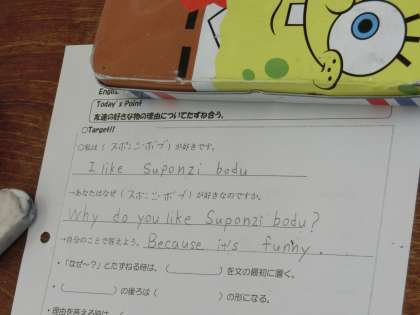 Englis
Today's Point
友達の好きな物の理由についてたずね合う。
○Target!!
○私は ( スポンジ・ボブ ) が好きです。
I like Suponzi bodu
→あなたはなぜ ( スポンジ・ボブ ) が好きなのですか。
Why do you like Suponzi bodu?
→自分のことで答えよう。 Because it's funny.
・「なぜ~?」とたずねる時は、( ) を文の最初に置く。
・( ) の後ろは ( ) の形になる。
・理由を答える時は